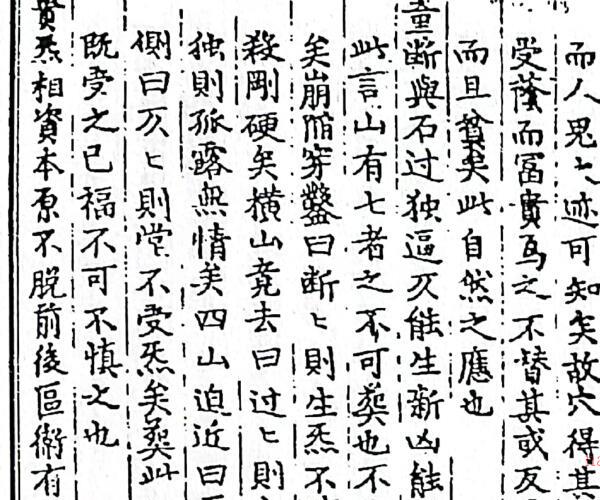 而人鬼ヒ迹可知矣故穴得其
受蔭而冨貴焉之不替其或反
而且貧矣此自然之應也
童断與石过独逼仄能生新凶能
此言山有七者之不可葬也不
矣崩陷穿鑿曰断ヒ則生炁不
殺剛硬矣横山竟去曰过ヒ則
独則孤露無情矣四山迫近曰
側曰仄ヒ則堂不受炁矣葬此
既受之已福不可不慎之也
貴炁相資本原不脱前後區衛有